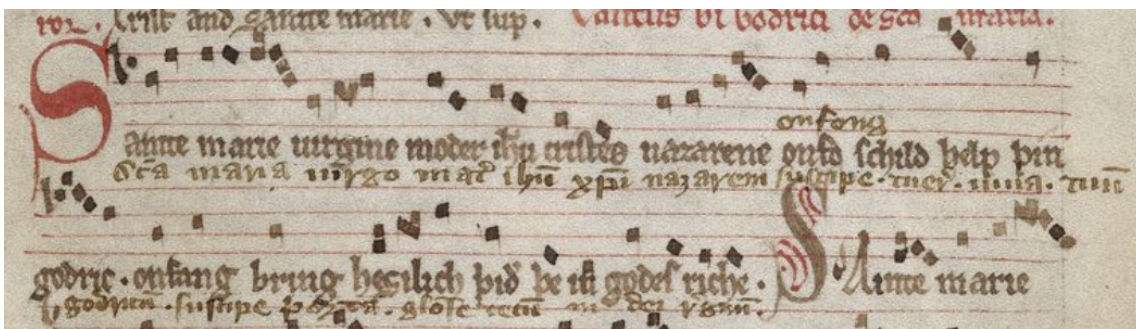 Crist and Sainte marie. Vt sup. Cantus bi Godrici de sca maria.
onfong
Sante marie uirgine moder ihu cristes nazarene onfo schild help þin
Sca maria uirgo mat ihu xpi nazareni suscipe. tuer. iuua. tuum
godric. onfang bring hegilich þid þe in godes riche. Sainte marie
godricum. suscipe porta. tecum in dei regnum.